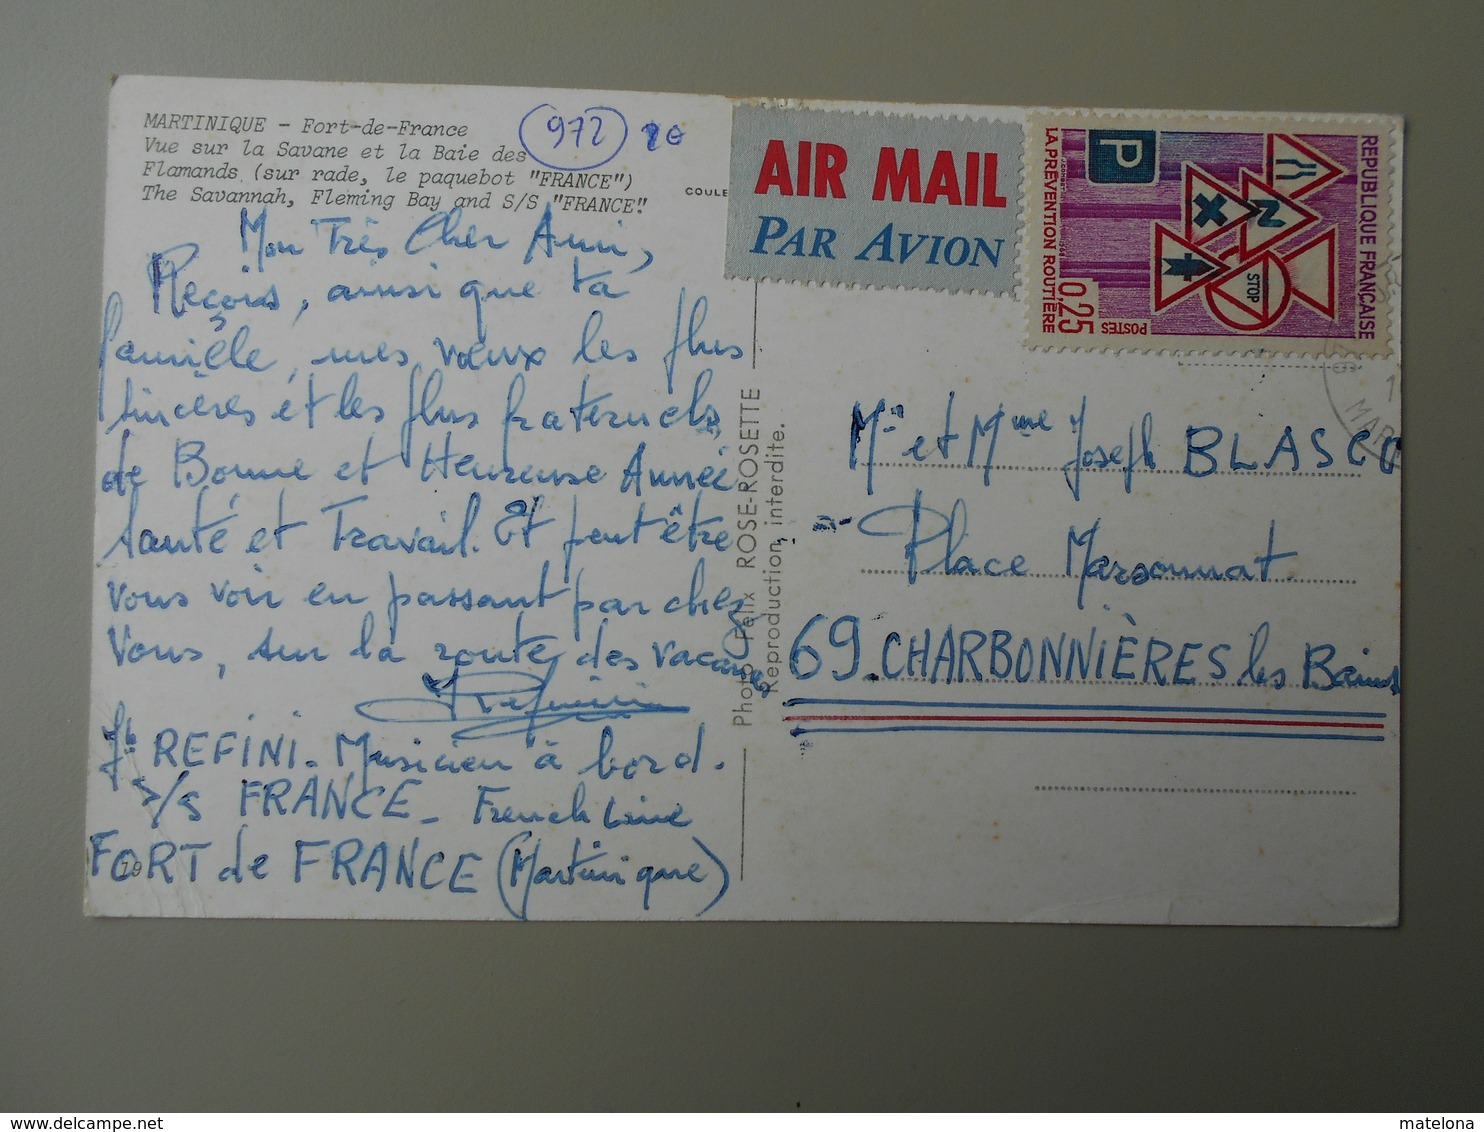 MARTINIQUE - Fort-de-France
Vue sur la Savane et la Baie des
Flamands (sur rade, le paquebot "FRANCE")
The Savannah, Fleming Bay and S/S "FRANCE"
972
COULE
AIR MAIL
PAR AVION
REPUBLIQUE FRANÇAISE
P
N
X
STOP
0,25
POSTES
LA PRÉVENTION ROUTIÈRE
MAR
Mon Très Cher Ami,
Reçois, ainsi que ta
famille, mes vœux les plus
sincères et les plus fraternels
de Bonne et Heureuse Année
Santé et Travail. Et peut être
vous voir en passant par chez
Vous, sur la route des vacances
Jh REFINI. Musicien à bord.
s/s FRANCE - French Line
FORT de FRANCE (Martinique)
79
Photo Félix ROSE-ROSETTE
Reproduction interdite.
Mr et Mme Joseph BLASCO
Place Marsonnat
69. CHARBONNIÈRES les Bains
matelona